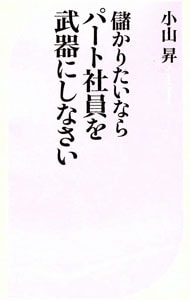 小山 昇
儲かりたいなら
パート社員を
武器にしなさい